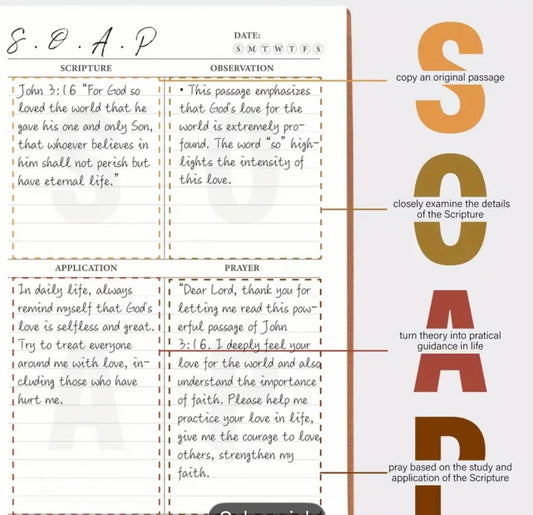 S.O.A.P
DATE:
S M T W T F S
SCRIPTURE
John 3:16 “For God so
loved the world that he
gave his one and only Son,
that whoever believes in
him shall not perish but
have eternal life.”
OBSERVATION
• This passage emphasizes
that God's love for the
world is extremely pro-
found. The word “so” high-
lights the intensity of
this love.
APPLICATION
In daily life, always
remind myself that God's
love is selfless and great.
Try to treat everyone
around me with love, in-
cluding those who have
hurt me.
PRAYER
“Dear Lord, thank you for
letting me read this pow-
erful passage of John
3:16. I deeply feel your
love for the world and also
understand the importance
of faith. Please help me
practice your love in life,
give me the courage to love
others, strengthen my
faith.
S
copy an original passage
O
closely examine the details
of the Scripture
A
turn theory into pratical
guidance in life
P
pray based on the study and
application of the Scripture